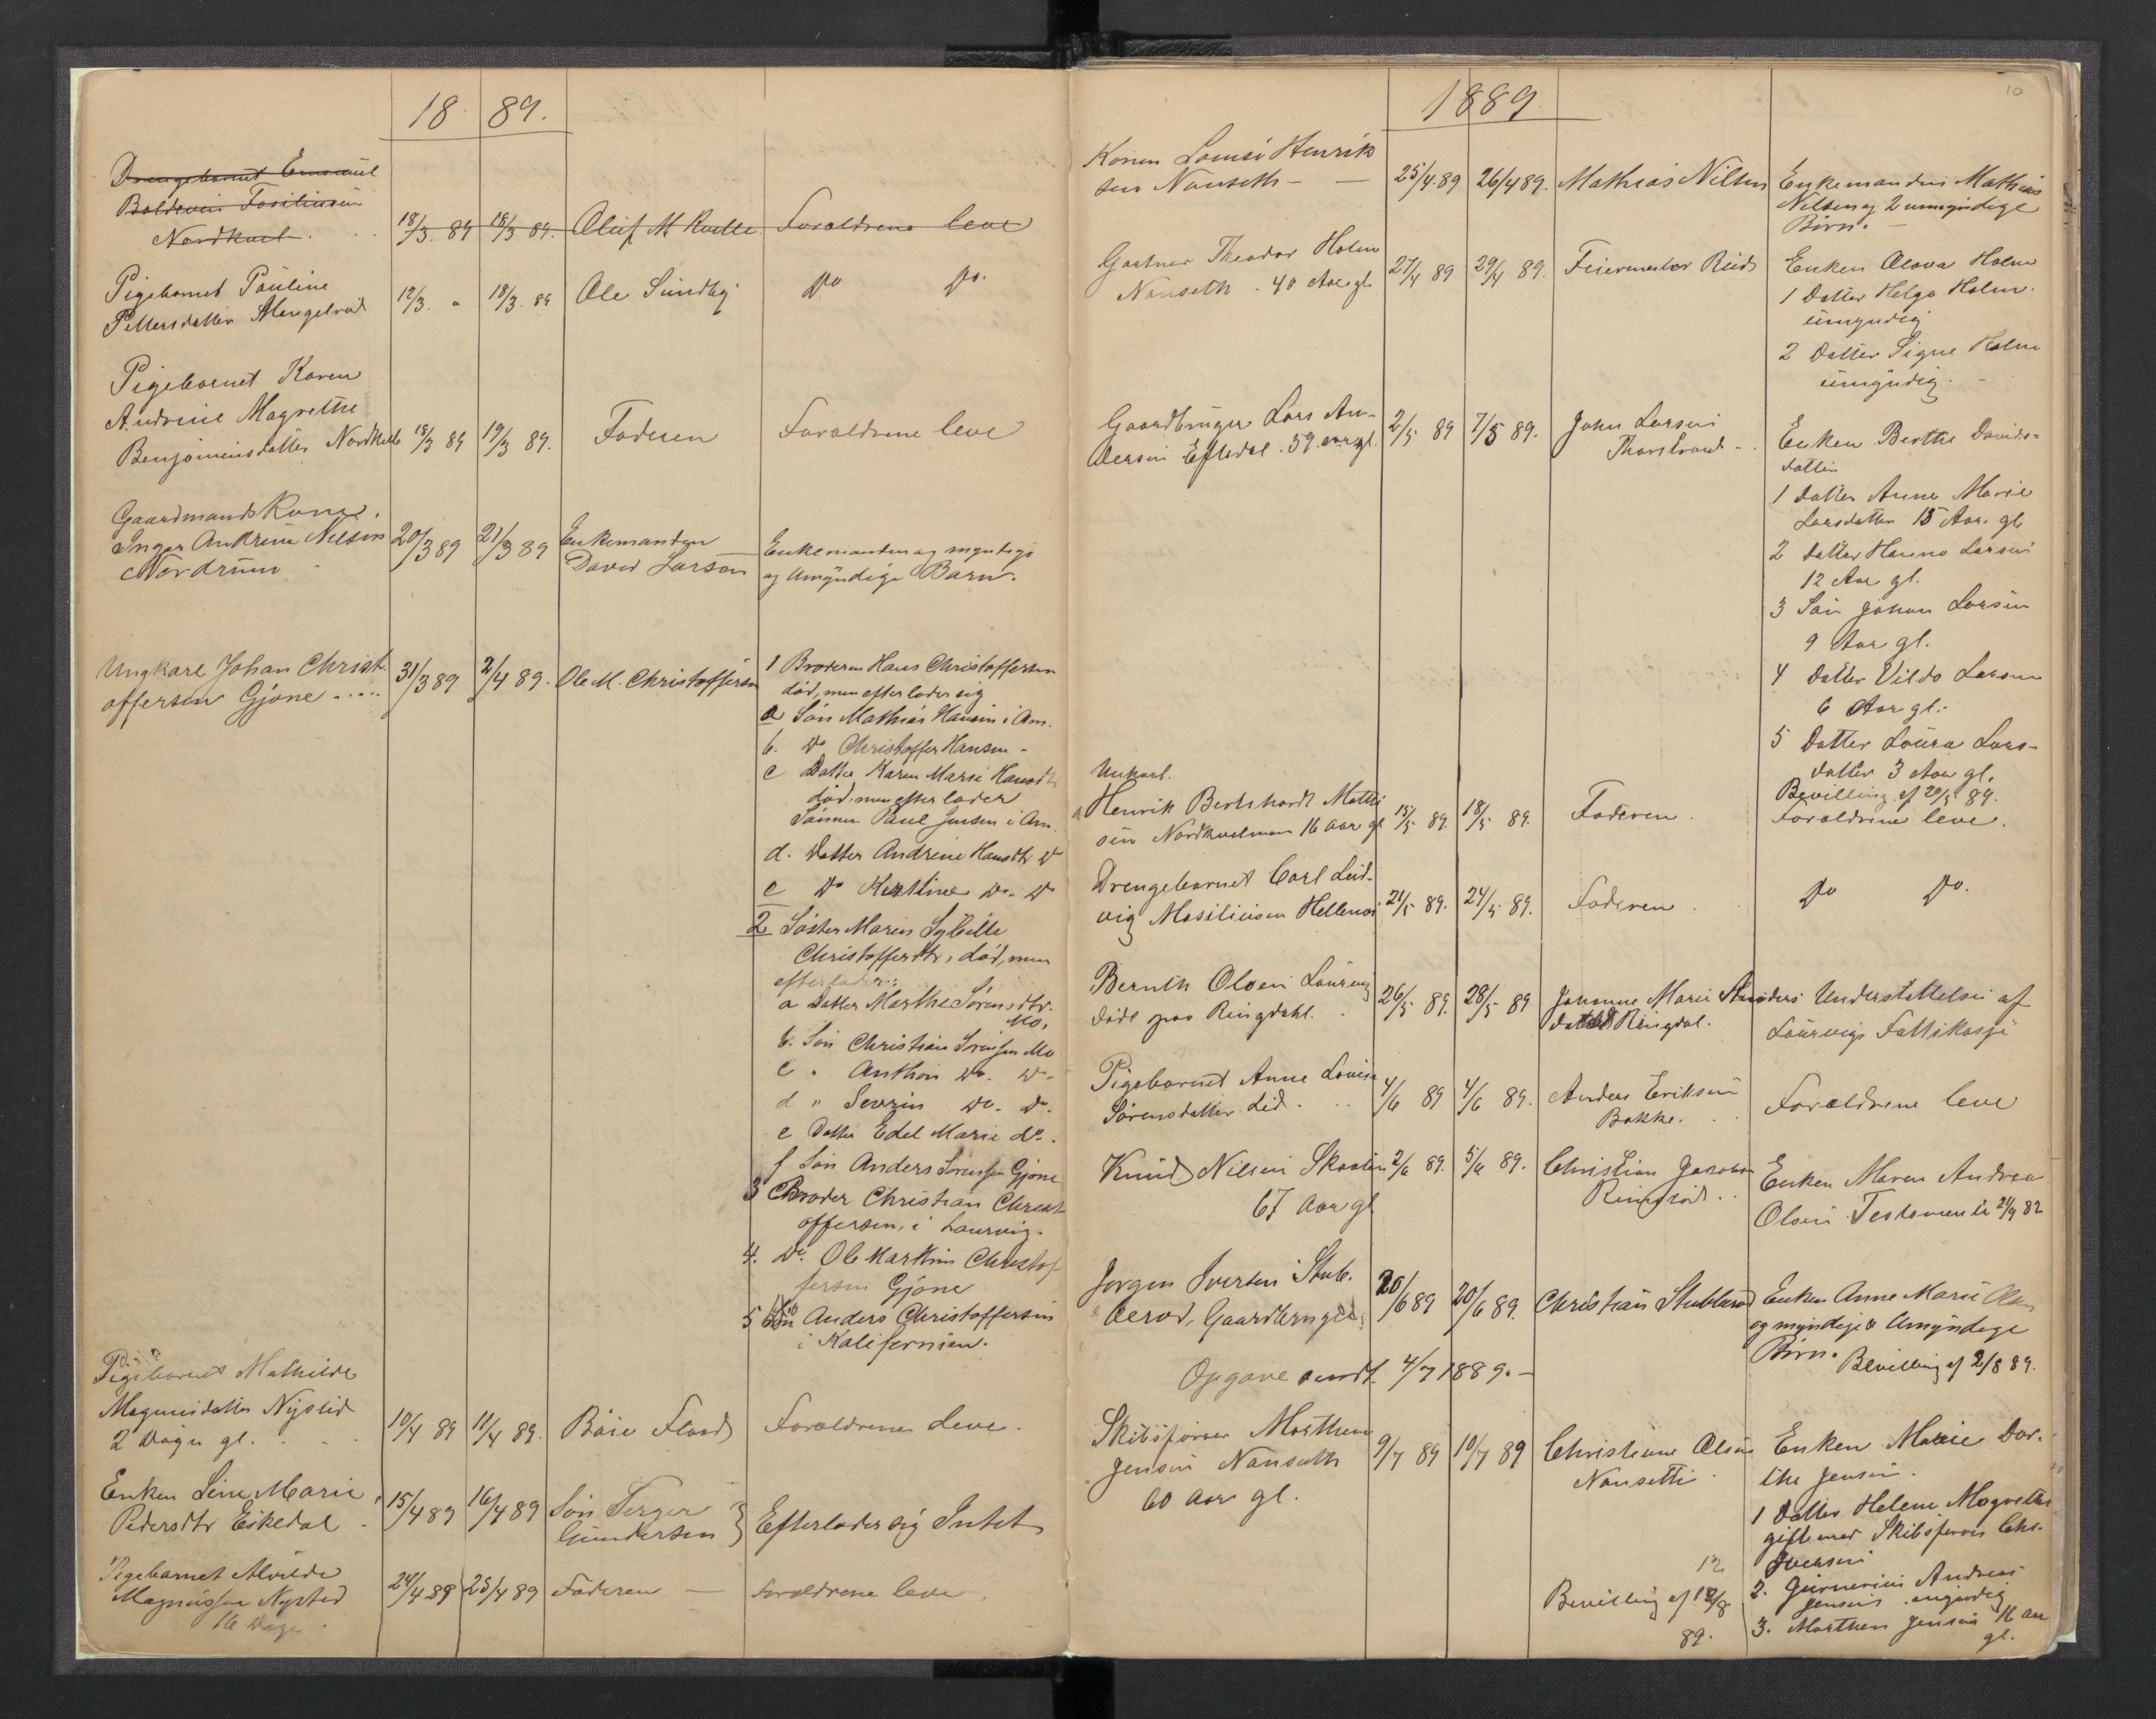 18 89.
Drengebarnet Emanuel
Boldevin
Nordkvel . 18/3. 89 18/3 89. Oluf M Kvelle. Foraldrene leve
Pigebarnet Pauline
Pettersdatter 12/3. " 18/3. 89 Ole Sundby Do Do.
Pigebarnet Karen
Andrine Magrethe
Benjaminsdatter Nordkvelle 18/3 89 19/3 89. Faderen Foraldrene leve
Gaardmands Kone.
Inger Andrine Nilsen 20/3 89 21/3 89 Enkemanden Enkemanden og myndige
Nordrum David Larsen og Umyndige Barn.
Ungkarl Johan Christ-
offersen Gjone ..... 31/3 89 2/4 89. Ole M. Christoffersen
1 Broderen Hans Christoffersen
død, men efterlader sig
a Søn Mathias Hansen i Am.
b. Do Christoffer Hansen -
c Datter Karen Marie Hansdtr
død, men efterlader
Sønnen Paul Jensen i Am.
d. Datter Andrine Hansdtr Do
e Do Kristine Do. Do
2 Søster Maren Sybille
Christoffersdtr, død, men
efterlader:
a Datter Marthe Sørensdtr.
Mo,
b. Søn Christian Sørensen Mo
c " Anthon Do. Do-
d " Severin Do. Do.
e Datter Edel Marie do.
f Søn Anders Sørensen Gjone
3 Broder Christian Christ-
offersen, i Laurvig.
4. Do. Ole Martin Christof
fersen Gjone
5 Anders Christoffersen
i Kalifornien.
Pigebarnet Mathilde
Magnusdatter Nysted
2 Dage gl. 10/4 89 11/4 89. Foraldrene Leve.
Enken Line Marie
Pedersdtr Eikedal 15/4 89 16/4 89 Søn Terger
Gundersen } Efterlader sig Intet
Pigebarnet Alvilde
Magnussen Nysted 24/4 89 25/4 89 Faderen — foraldrene leve.
16 Dage
10
1889
Konen Lovise Henrik
sen Nanseth — 25/4.89 26/4 89. Mathias Nilsen Enkemanden Mathias
Nilsen og 2 umyndige
Børn.
Gartner Theodor Holm
Nanseth . 40 Aar gl. 27/4 89 29/4 89. Feiermester Enken Olava Holm
1 Datter Helga Holm.
umyndig
2 Datter Signe Holm
umyndig.
Gaardbruger Lars An-
dersen Eftedal . 59. aar gl. 2/5 89 7/5 89. John Larsen
Thorstrand Enken Berthe Davids-
datter
1 Datter Anne Marie
Larsdatter 15 Aar. gl.
2 Datter Hanna Larsen
12 Aar gl.
3 Søn Johan Larsen
9 Aar gl.
4 Datter Vilda Larsen
6 Aar gl.
5 Datter Laura Lars-
datter 3 Aar gl.
Bevilling af 20/5 89.
Unkarl.
Henrik Bernhardt Mathi
sen Nordkvelmoen 16 aar gl 15/5 89. 18/5 89. Faderen. Foraldrene leve.
Drengebarnet Carl Lud-
vig 21/5 89. 24/5 89. Faderen. Do Do.
Bernth Olsen Laurvig
døde paa Ringdahl. 26/5 89. 28/5 89 Johanne Marie
datter Ringdal. Understøttelse af
Laurvigs Fattikasse
Pigebarnet Anne Lovise
Sørensdatter Lid. 4/6 89 4/6 89. Anders Eriksen
Bakke. Foraldrene leve
Knud Nilsen 2/6 89. 5/6 89. Christian Jacobsen
67 Aar gl Enken Maren Andrea
Olsen Testamente 24/9 82
Jørgen Iversen Stub.
derød, Gaardbruger. 20/6 89 20/6 89. Christian Stubberød Enken Anne Marie Olsen
og myndige & Umyndige
Børn. Bevilling af 2/8 89.
Opgave sendt 4/7 1889.—
Skibsfører Marthin
Jensen Nanseth
60 aar gl. 9/7 89 10/7 89 Christiane Olsen
Nansetti. Enken Marie Dor-
the Jensen.
1 Datter Helene Magrethe
gift med Skibsfører Chr.
Iversen
2. Andreas
Jensen umyndig
3. Marthin Jensen 16 aar
gl.
12
Bevilling af 12/8
89.